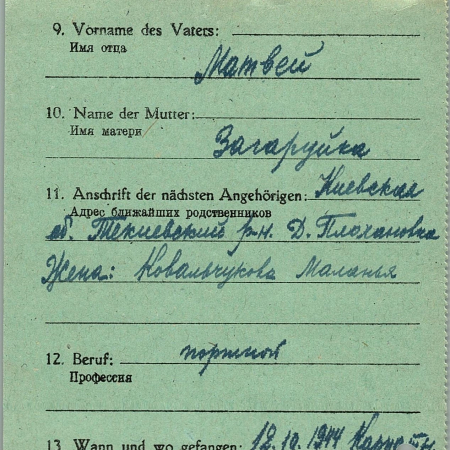 9. Vorname des Vaters:
Имя отца
Матвей
10. Name der Mutter:
Имя матери
Загаруйка
11. Anschrift der nächsten Angehörigen: Киевская
Адрес ближайших родственников
об. Текиевский р-н. Д. Плахановка
Жена: Ковальчукова Маланья
12. Beruf: портной
Профессия
13. Wann und wo gefangen: 12.10.1944